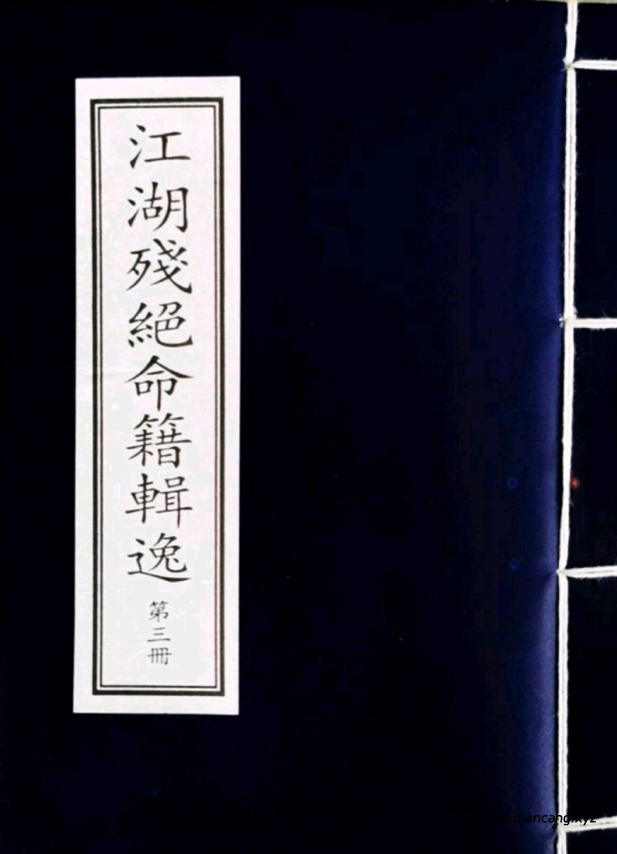 江湖殘絕命籍輯逸
第三冊
diancangl.xyz